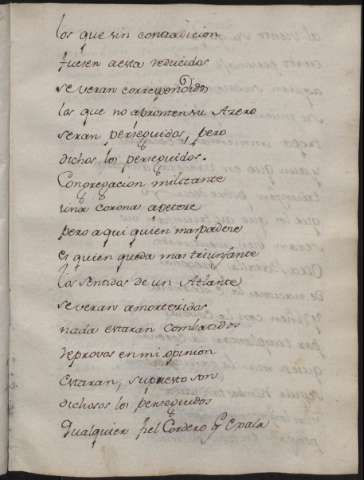 los que sin contradicion
fueren a esta reducidos
se veran correspondidos
los que no afronten su Azero
seran perseguidos, pero
dichos los perseguidos.
Congregacion militante
una corona apetece
pero aqui quien mas padece
es quien queda mas triunfante
los sentidos de un Atlante
se veran amortecidos
nada estaran combatidos
reprovos en mi opinion
Estaran, supuesto son
dichosos los perseguidos
Qualquier fiel Cordero q